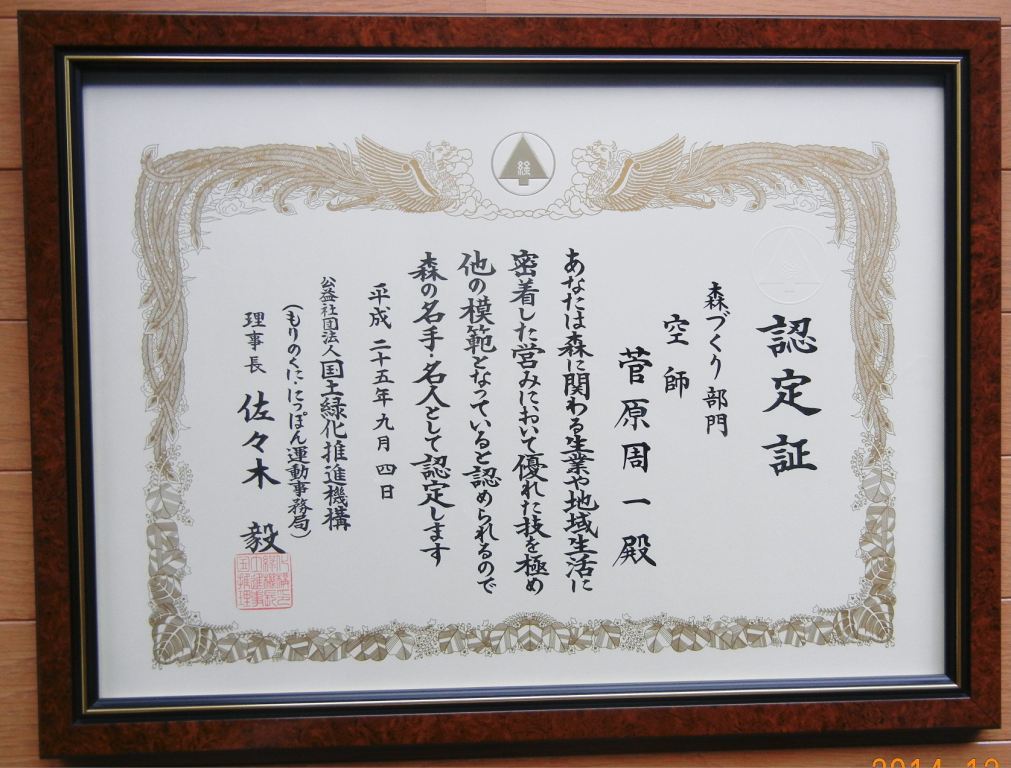 認定証
森づくり部門
空師
菅原周一殿
あなたは森に関わる生業や地域生活に
密着した営みにおいて優れた技を極め
他の模範となっていると認められるので
森の名手・名人として認定します
平成二十五年九月四日
公益社団法人国土緑化推進機構
(もりのくに・にっぽん運動事務局)
理事長 佐々木 毅